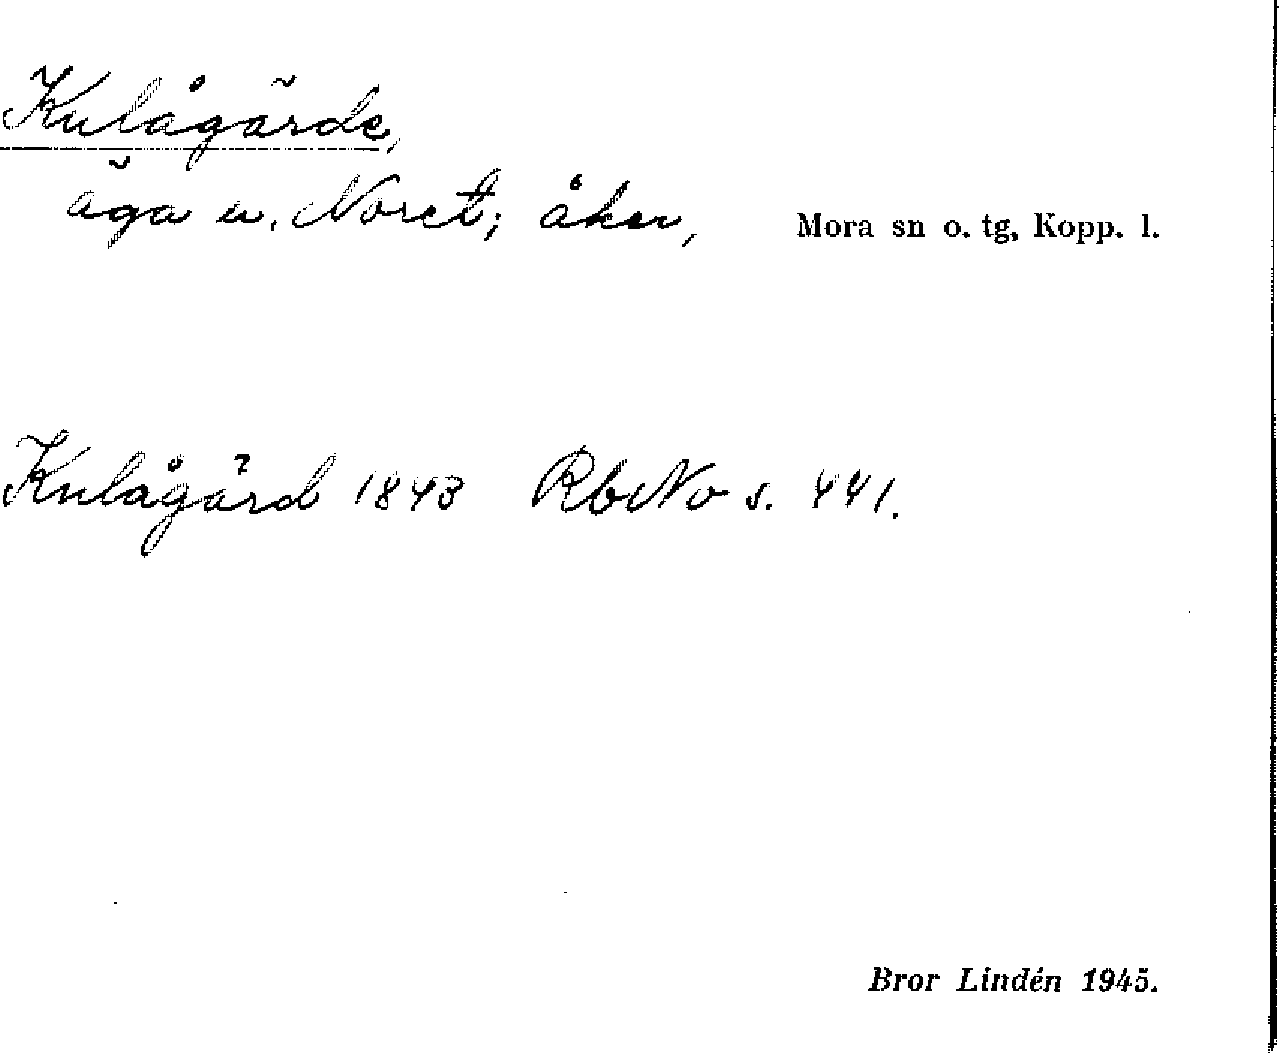 Kulågärde,
äga u. Noret; åker, Mora sn o. tg, Kopp. l.
Kulågärd 1843 RbNo s. 441.
Bror Lindén 1945.